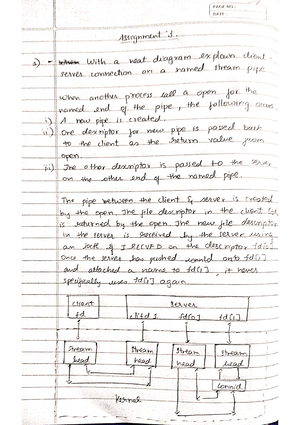 PAGE NO.:
DATE:
Assignment 3.
a) - With a neat diagram explain client-
server connection on a named stream pipe
When another process call a open for the
named end of the pipe, the following occurs
i) A new pipe is created.
ii) One descriptor for new pipe is passed back
to the client as the return value from
open.
iii) The other descriptor is passed to the server
on the other end of the named pipe.
The pipe between the client & server is created
by the open. The file descriptor in the client
is returned by the open. The new file descriptor
in the server is received by the server using
an ioctl of I_RECVFD on the descriptor fd[0].
Once the server has pushed connld onto fd[1]
and attached a name to fd[1], it never
specifically uses fd[1] again.
client Server
fd clifd1 fd[0] fd[1]
Stream Stream Stream Stream
head head head head
connld
Kernel